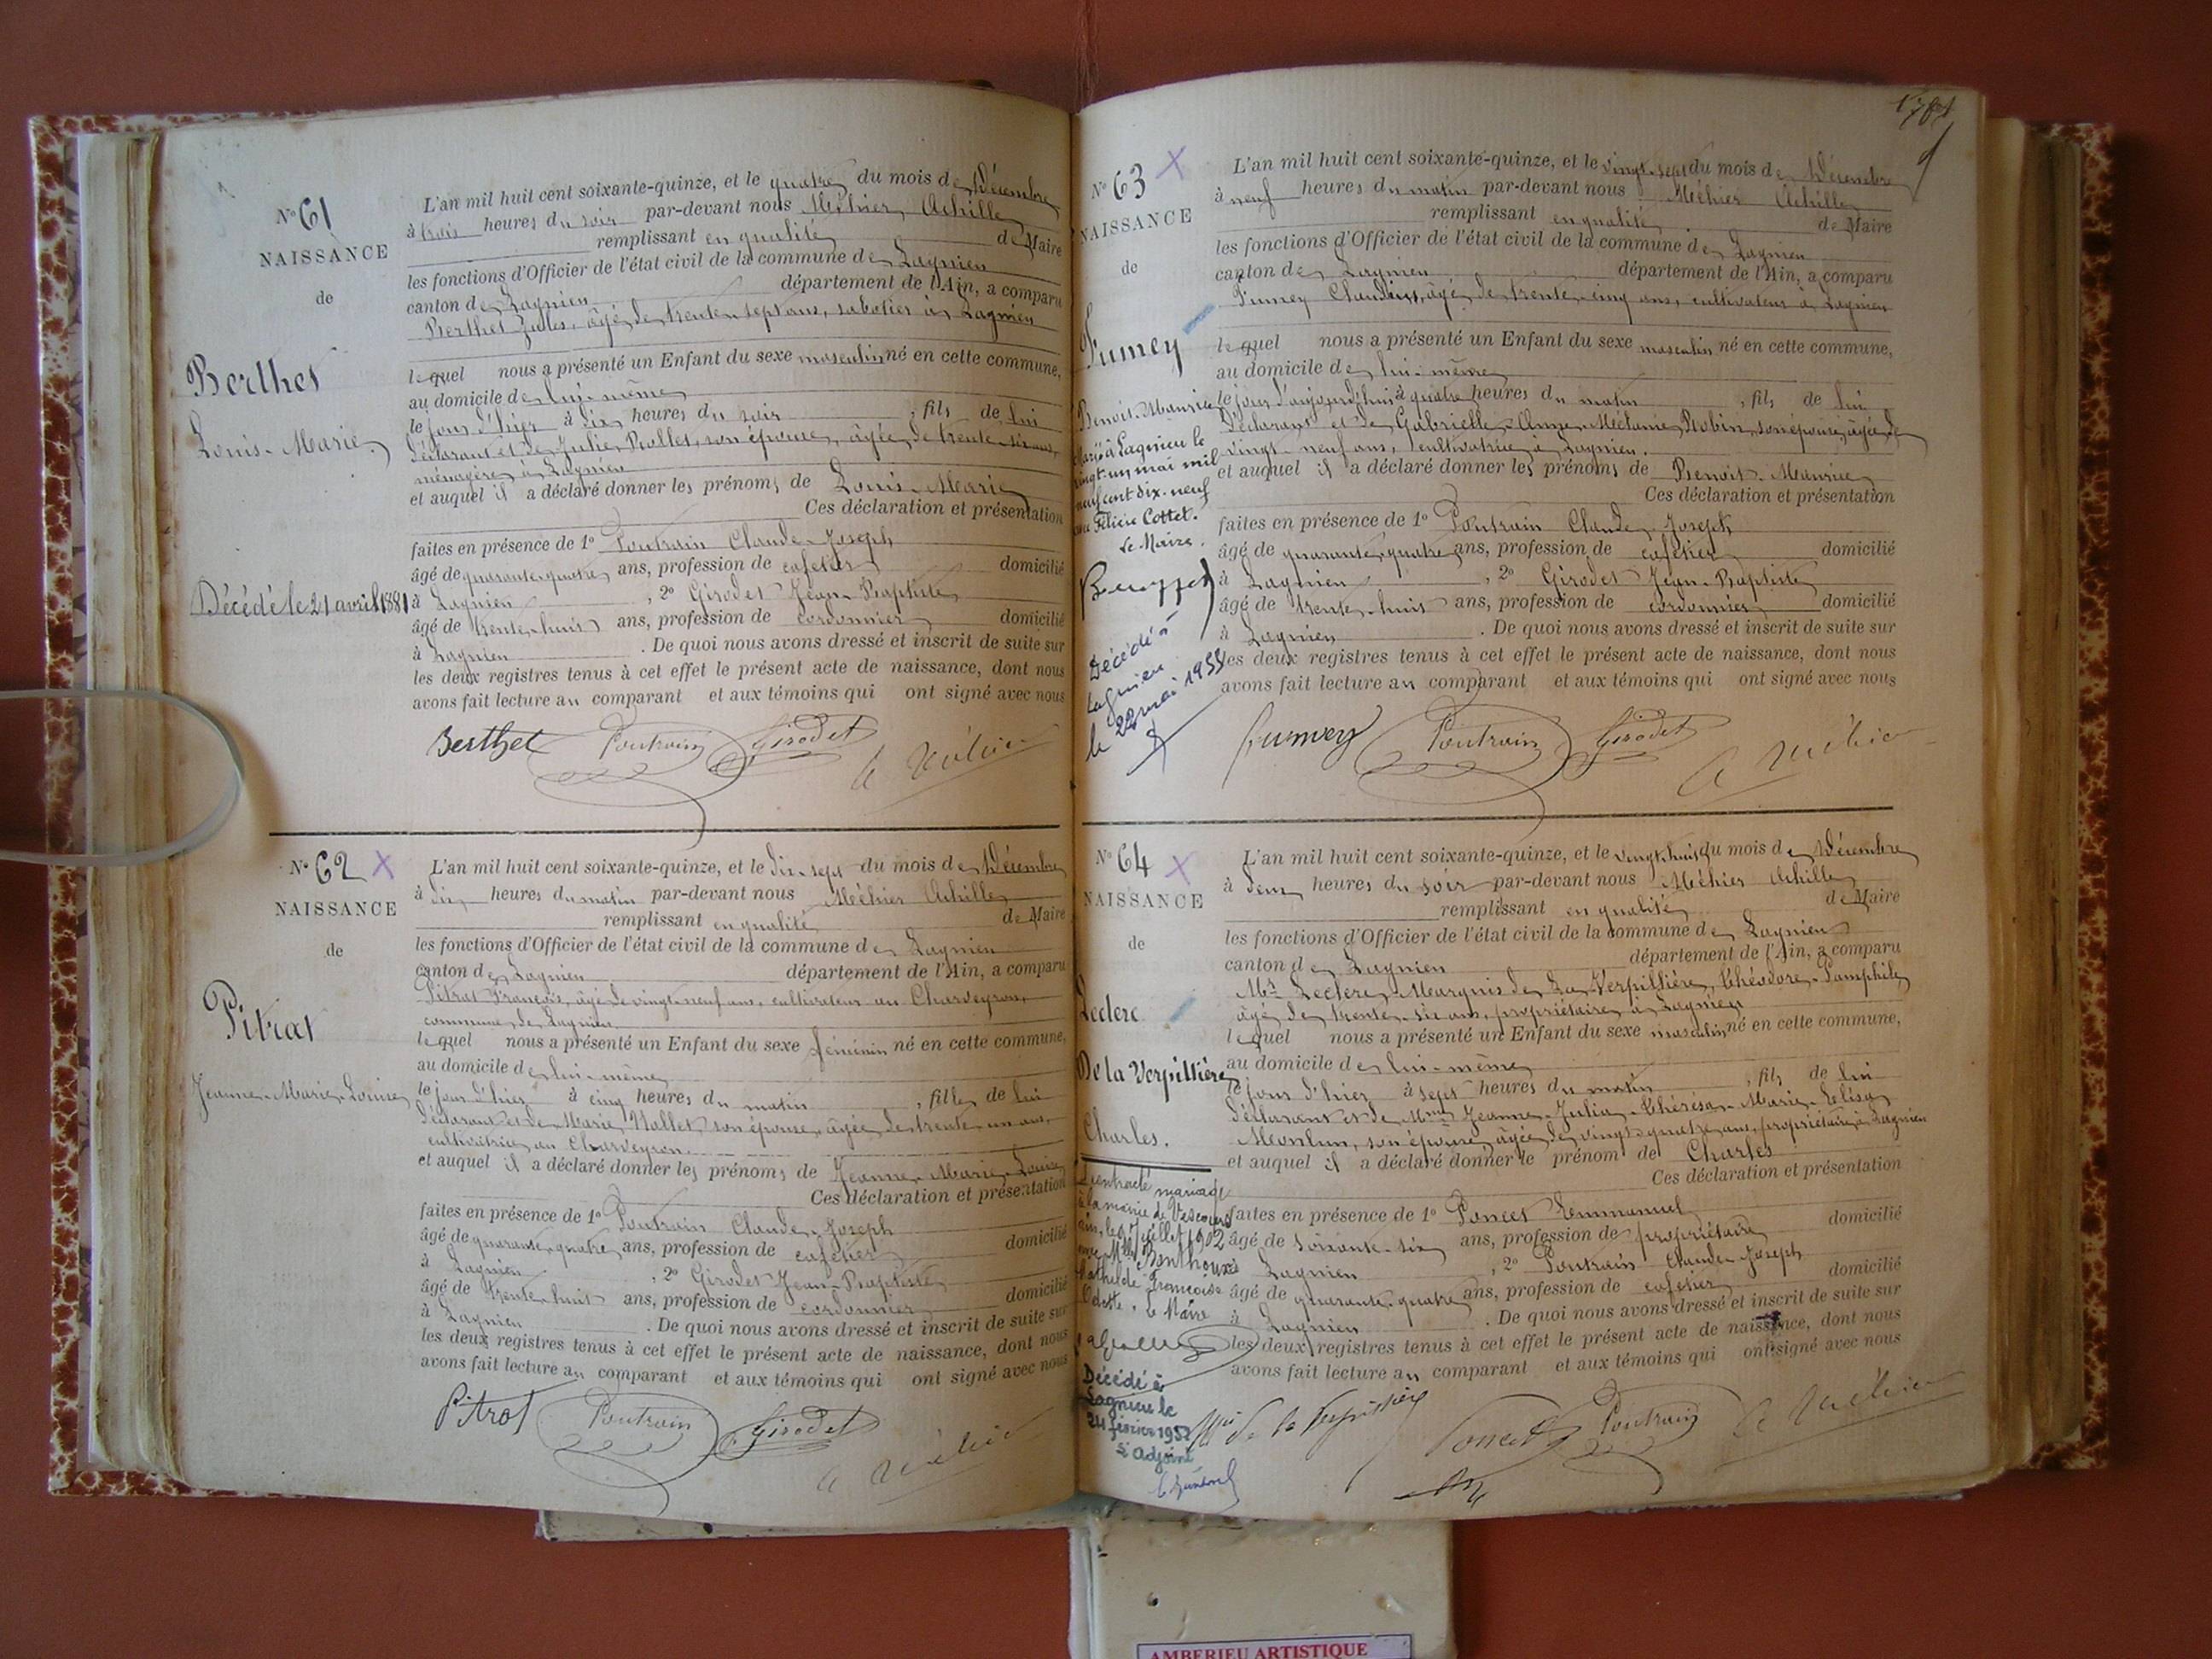 N° 61
NAISSANCE
de
Berthet
Louis-Marie
Décédé le 21 avril 1881
L'an mil huit cent soixante-quinze, et le quatre du mois de Décembre
à trois heures du soir par-devant nous Méhier Achille
remplissant en qualité de Maire
les fonctions d'Officier de l'état civil de la commune de Lagnieu
canton de Lagnieu département de l'Ain, a comparu
Berthet Jules, âgé de trente-sept ans, sabotier à Lagnieu
lequel nous a présenté un Enfant du sexe masculin né en cette commune,
au domicile de lui-même
le jour d'hier à dix heures du soir, fils de lui
déclarant et de Julie Rollet, son épouse, âgée de trente-six ans,
ménagère à Lagnieu
et auquel il a déclaré donner les prénoms de Louis-Marie
Ces déclaration et présentation
faites en présence de 1° Poutrain Claude-Joseph
âgé de quarante-quatre ans, profession de cafetier domicilié
à Lagnieu, 2° Girodet Jean-Baptiste
âgé de trente-huit ans, profession de cordonnier domicilié
à Lagnieu. De quoi nous avons dressé et inscrit de suite sur
les deux registres tenus à cet effet le présent acte de naissance, dont nous
avons fait lecture au comparant et aux témoins qui ont signé avec nous
Berthet Poutrain Girodet A Méhier
N° 62 X
NAISSANCE
de
Pitrat
Jeanne-Marie-Louise
L'an mil huit cent soixante-quinze, et le dix-sept du mois de Décembre
à dix heures du matin par-devant nous Méhier Achille
remplissant en qualité de Maire
les fonctions d'Officier de l'état civil de la commune de Lagnieu
canton de Lagnieu département de l'Ain, a comparu
Pitrat François, âgé de vingt-neuf ans, cultivateur au Charveyron,
commune de Lagnieu
lequel nous a présenté un Enfant du sexe féminin né en cette commune,
au domicile de lui-même
le jour d'hier à cinq heures du matin, fille de lui
déclarant et de Marie Nallet son épouse, âgée de trente-un ans,
cultivatrice au Charveyron
et auquel il a déclaré donner les prénoms de Jeanne-Marie-Louise
Ces déclaration et présentation
faites en présence de 1° Poutrain Claude-Joseph
âgé de quarante-quatre ans, profession de cafetier domicilié
à Lagnieu, 2° Girodet Jean-Baptiste
âgé de trente-huit ans, profession de cordonnier domicilié
à Lagnieu. De quoi nous avons dressé et inscrit de suite sur
les deux registres tenus à cet effet le présent acte de naissance, dont nous
avons fait lecture au comparant et aux témoins qui ont signé avec nous
Pitrat Poutrain Girodet A Méhier
N° 63 X
NAISSANCE
de
Fumey
Benoit-Maurice
Marié à Lagnieu le
vingt-un mai mil
neuf cent dix-neuf
avec Félicie Cottet.
Le Maire.
Décédé à
Lagnieu
le 22 mai 1955
L'an mil huit cent soixante-quinze, et le vingt-sept du mois de Décembre
à neuf heures du matin par-devant nous Méhier Achille
remplissant en qualité de Maire
les fonctions d'Officier de l'état civil de la commune de Lagnieu
canton de Lagnieu département de l'Ain, a comparu
Fumey Claudius, âgé de trente-cinq ans, cultivateur à Lagnieu
lequel nous a présenté un Enfant du sexe masculin né en cette commune,
au domicile de lui-même
le jour d'aujourd'hui à quatre heures du matin, fils de lui
déclarant et de Gabrielle-Anne-Mélanie Robin, son épouse, âgée de
vingt-neuf ans, cultivatrice à Lagnieu.
et auquel il a déclaré donner les prénoms de Benoit-Maurice
Ces déclaration et présentation
faites en présence de 1° Poutrain Claude-Joseph
âgé de quarante-quatre ans, profession de cafetier domicilié
à Lagnieu, 2° Girodet Jean-Baptiste
âgé de trente-huit ans, profession de cordonnier domicilié
à Lagnieu. De quoi nous avons dressé et inscrit de suite sur
les deux registres tenus à cet effet le présent acte de naissance, dont nous
avons fait lecture au comparant et aux témoins qui ont signé avec nous
fumey Poutrain Girodet A Méhier
N° 64 X
NAISSANCE
de
Leclerc
De la Verpillière
Charles.
à la mairie de
Mathilde Françoise
Odette. Le Maire
Décédé à
Lagnieu le
24 février 1952
L'adjoint
L'an mil huit cent soixante-quinze, et le vingt-huit du mois de Décembre
à deux heures du soir par-devant nous Méhier Achille
remplissant en qualité de Maire
les fonctions d'Officier de l'état civil de la commune de Lagnieu
canton de Lagnieu département de l'Ain, a comparu
Mr Leclerc, Marquis de La Verpillière, Théodore-Pamphile
âgé de trente-six ans, propriétaire à Lagnieu
lequel nous a présenté un Enfant du sexe masculin né en cette commune,
au domicile de lui-même
le jour d'hier à sept heures du matin, fils de lui
déclarant et de Mme Jeanne-Julia-Thérésa-Marie-Elisa
son épouse, âgée de vingt-quatre ans, propriétaire à Lagnieu
et auquel il a déclaré donner le prénom de Charles
Ces déclaration et présentation
faites en présence de 1° Poncet Emmanuel
âgé de soixante-six ans, profession de propriétaire domicilié
à Lagnieu, 2° Poutrain Claude-Joseph
âgé de quarante-quatre ans, profession de cafetier domicilié
à Lagnieu. De quoi nous avons dressé et inscrit de suite sur
les deux registres tenus à cet effet le présent acte de naissance, dont nous
avons fait lecture au comparant et aux témoins qui ont signé avec nous
Mis de la Verpillière Poncet Poutrain A Méhier
AMBERIEU ARTISTIQUE